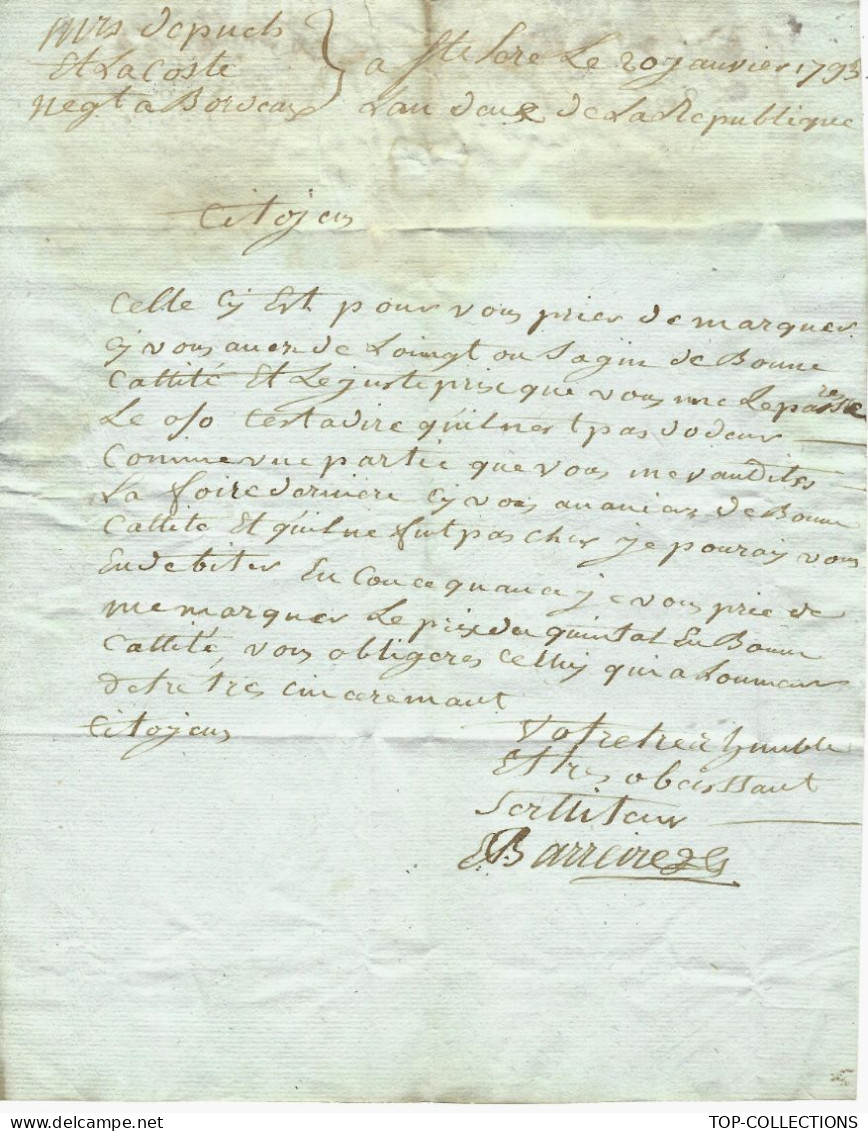 Mrs Depuch
Et Lacoste
negt a Bordeaux
a Ste Fore Le 20 janvier 1793
Lan deux de La Republique
Citojens
Celle cy Est pour vous prier de marquer
cy vous aves de Loingt ou Sagin de Bonne
Cattité Et Le juste prix que vous me Le passe
re
Le 0/0 cest a dire quil nest pas dodeur
Comme une partie que vous me vandites
La foire derniere cy vous an avies de Bonne
Cattité Et quil ne fut pas cher je pouray vous
En debiter En Concequance je vous prie de
me marquer Le prix du quintal En Bonne
Cattité, vous obligeres celluy qui a Lonneur
detre tres cinceremant
Citojens
Votre tres humble
Et tres obeissant
Serviteur
Barreire
TOP-COLLECTIONS